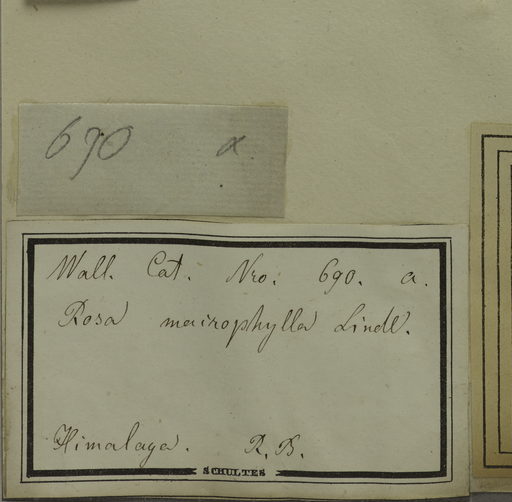 690 a.
Wall. Cat. Nro. 690. a.
Rosa macrophylla Lindl.
Himalaya. R. B.
SCHULTES